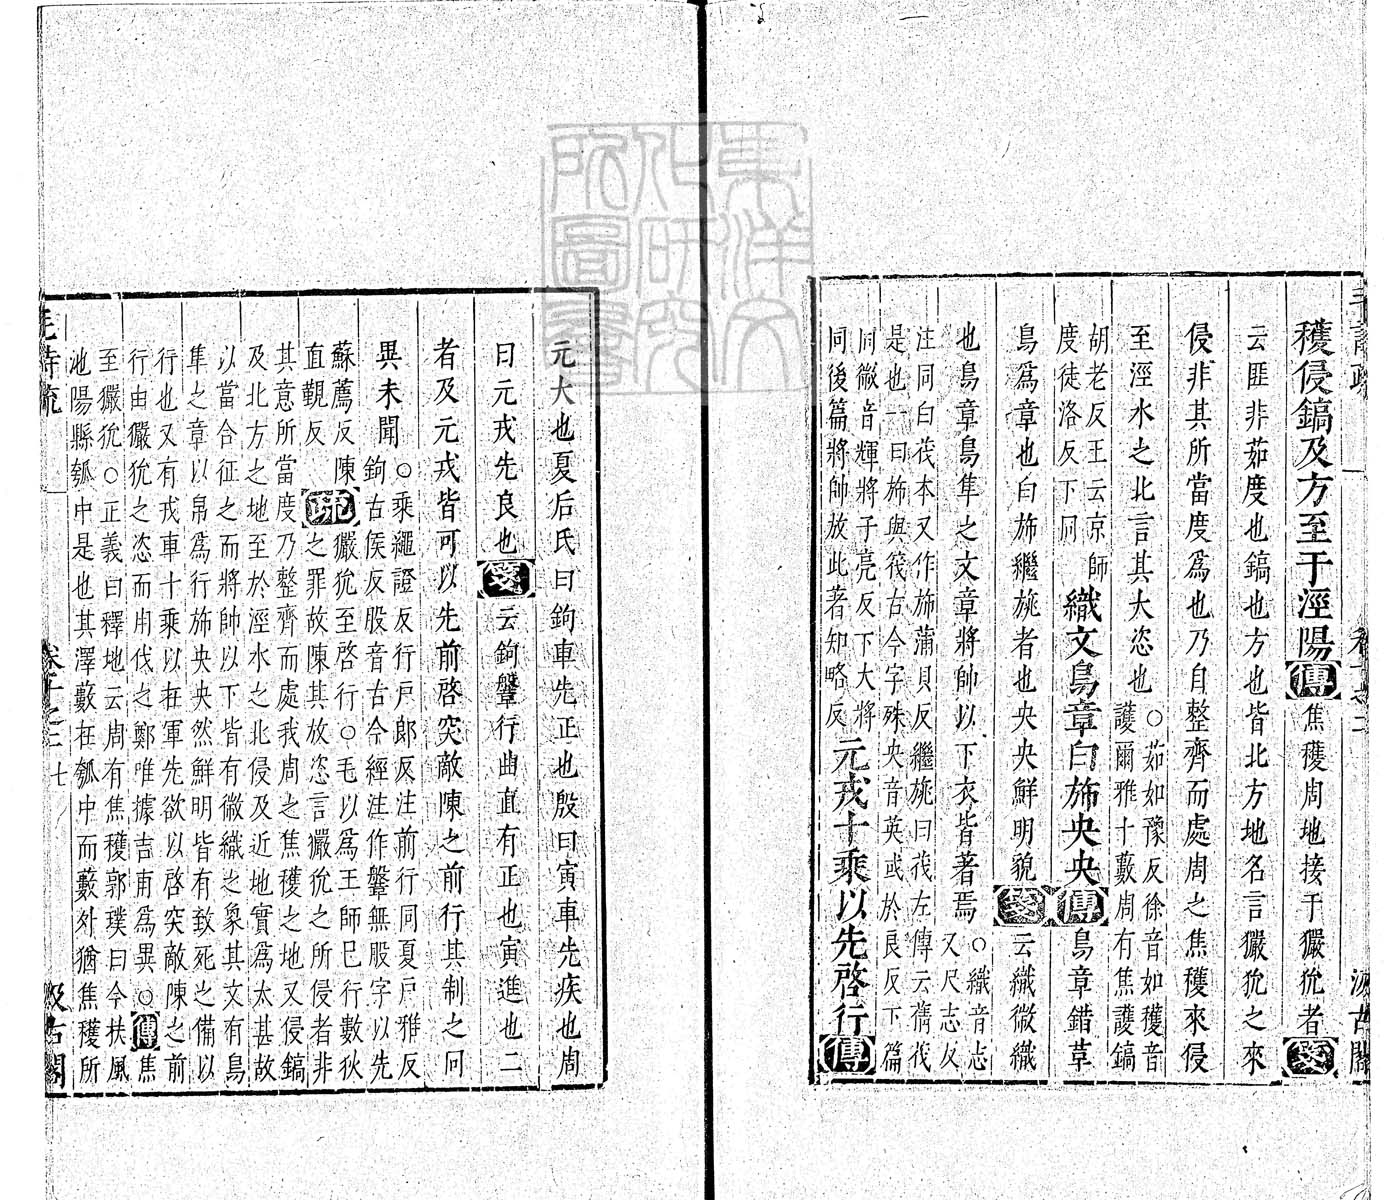 毛詩疏 卷十之二 汲古閣
穫侵鎬及方至于涇陽傳焦穫周地接于玁狁者箋
云匪非茹度也鎬也方也皆北方地名言玁狁之來
侵非其所當度爲也乃自整齊而處周之焦穫來侵
至涇水之北言其大恣也○茹如豫反徐音如穫音
護爾雅十藪周有焦護鎬
胡老反王云京師
度徒洛反下同
織文鳥章白斾央央傳鳥章錯革
鳥爲章也白斾繼旐者也央央鮮明貌箋云織徽織
也鳥章鳥隼之文章將帥以下衣皆著焉○織音志
又尺志反
注同白茷本又作斾蒲貝反繼旐曰茷左傳云蒨茷
是也一曰斾與茷古今字殊央音英或於良反下篇
同徽音輝將子亮反下大將
同後篇將帥放此著知略反
元戎十乘以先啓行傳
元大也夏后氏曰鉤車先正也殷曰寅車先疾也周
曰元戎先良也箋云鉤鞶行曲直有正也寅進也二
者及元戎皆可以先前啓突敵陳之前行其制之同
異未聞○乘繩證反行戸郎反注前行同夏戸雅反
鉤古侯反股音古今經注作鞶無股字以先
蘇薦反陳
直覲反
疏玁狁至啓行○毛以爲王師已行數狄
之罪故陳其放恣言玁狁之所侵者非
其意所當度乃整齊而處我周之焦穫之地又侵鎬
及北方之地至於涇水之北侵及近地實爲太甚故
以當合征之而將帥以下皆有徽織之象其文有鳥
隼之章以帛爲行斾央央然鮮明皆有致死之備以
行也又有戎車十乘以在軍先欲以啓突敵陳之前
行由玁狁之恣而用伐之鄭唯據吉甫爲異○傳焦
至玁狁○正義曰釋地云周有焦穫郭璞曰今扶風
池陽縣瓠中是也其澤藪在瓠中而藪外猶焦穫所
毛詩疏 卷十之二 七 汲古閣
東洋文
化研究
所圖書